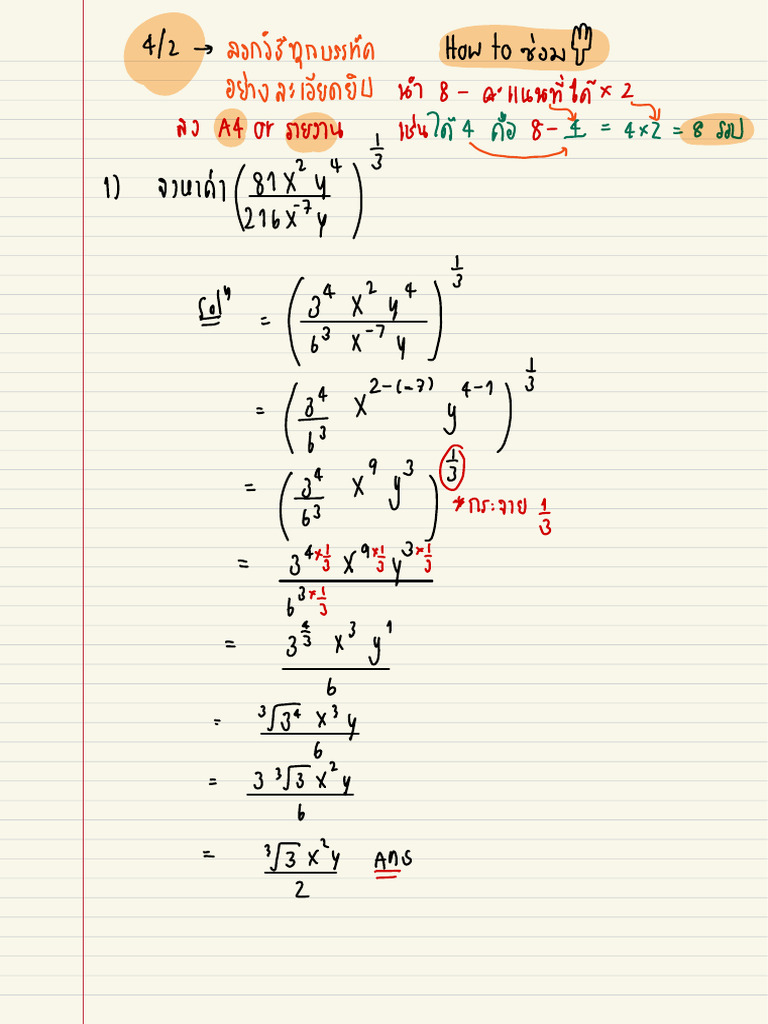 4/2 → ลอกวิธีทุกบรรทัด How to ซ่อม
อย่างละเอียดยิบ นำ 8 - คะแนนที่ได้ × 2
ลง A4 or รายงาน เช่นได้ 4 คือ 8 - 4 = 4×2 = 8 รอบ
1) จงหาค่า (81x²y⁴ / 216x⁻⁷y)^(1/3)
Solⁿ = (3⁴ x² y⁴ / 6³ x⁻⁷ y)^(1/3)
= (3⁴/6³ x^(2-(-7)) y^(4-1))^(1/3)
= (3⁴/6³ x⁹ y³)^(1/3) *กระจาย 1/3
= 3^(4×1/3) x^(9×1/3) y^(3×1/3) / 6^(3×1/3)
= 3^(4/3) x³ y¹ / 6
= ³√3⁴ x³y / 6
= 3 ³√3 x²y / 6
= ³√3 x²y / 2 Ans